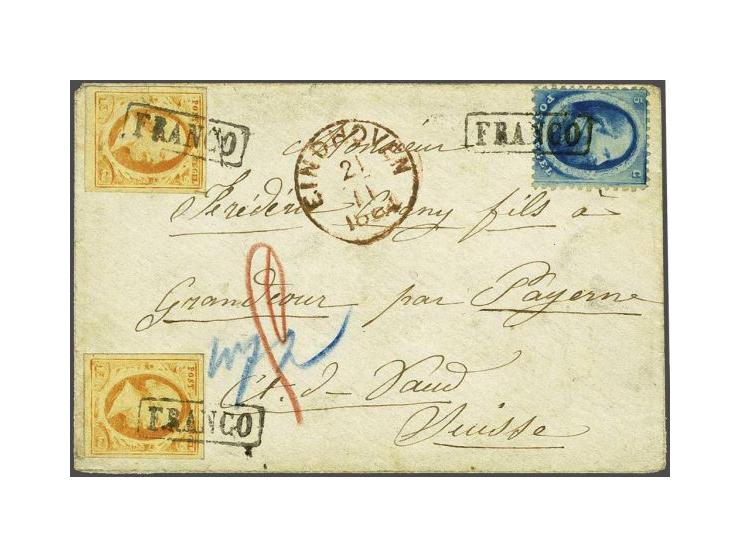 FRANCO
FRANCO
EINDHOVEN
21
11
1864
Monsieur
Frédéric Cagny fils à
Grandcour par Payerne
Ct. d- Vaud
Suisse
FRANCO
POST
5